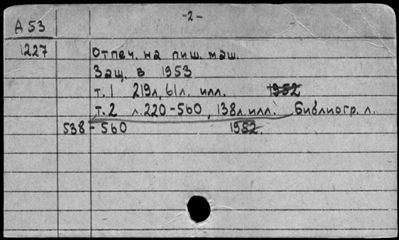 -2-
А 53
1227 Отпеч. на пиш. маш.
Защ. в 1953
т.1 219л, 61л. илл. 1952
т.2 л.220-560, 138л. илл. Библиогр. л.
538-560 1952.